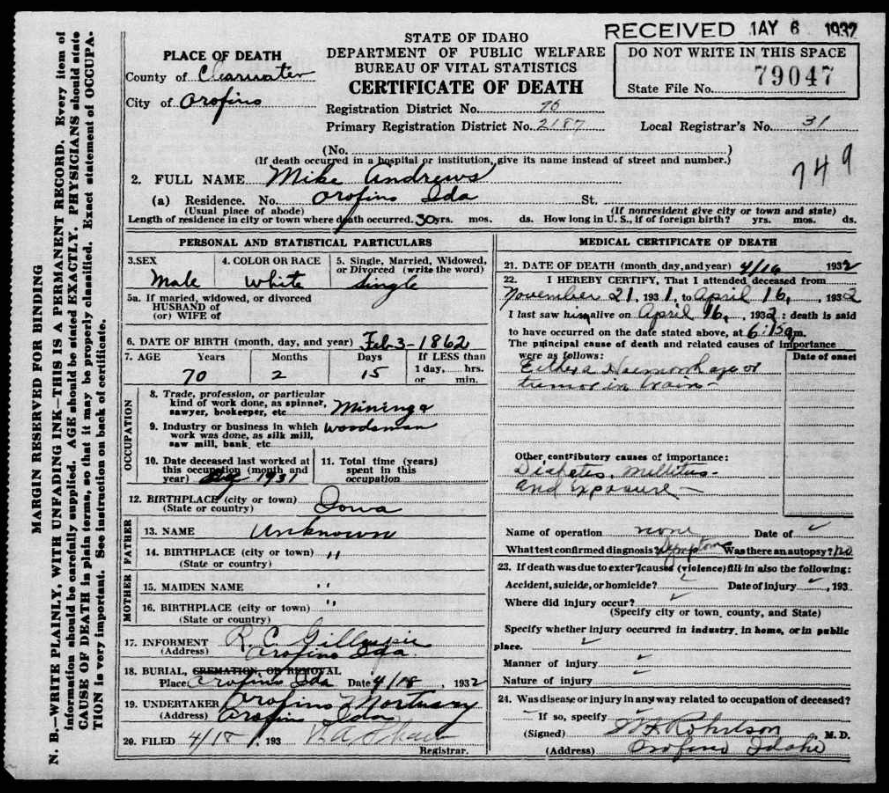 STATE OF IDAHO
DEPARTMENT OF PUBLIC WELFARE
BUREAU OF VITAL STATISTICS
CERTIFICATE OF DEATH
RECEIVED MAY 6 1932
DO NOT WRITE IN THIS SPACE
State File No. 79047
PLACE OF DEATH
County of Clearwater
City of Orofino
Registration District No. 76
Primary Registration District No. 2187 Local Registrar's No. 31
(No. )
(If death occurred in a hospital or institution, give its name instead of street and number.)
749
2. FULL NAME Mike Andrews
(a) Residence. No. Orofino Ida St.
(Usual place of abode) (If nonresident give city or town and state)
Length of residence in city or town where death occurred. 30 yrs. mos. ds. How long in U. S., if of foreign birth? yrs. mos. ds.
PERSONAL AND STATISTICAL PARTICULARS
3. SEX Male
4. COLOR OR RACE White
5. Single, Married, Widowed, or Divorced (write the word) Single
5a. If married, widowed, or divorced
HUSBAND of
(or) WIFE of
6. DATE OF BIRTH (month, day, and year) Feb-3-1862
7. AGE Years Months Days If LESS than
1 day, hrs.
or min.
70 2 15
OCCUPATION
8. Trade, profession, or particular
kind of work done, as spinner,
sawyer, bookeeper, etc Mining &
9. Industry or business in which woodsman
work was done, as silk mill,
saw mill, bank, etc
10. Date deceased last worked at
this occupation (month and
year) 1931
11. Total time (years)
spent in this
occupation
12. BIRTHPLACE (city or town)
(State or country) Iowa
FATHER
13. NAME Unknown
14. BIRTHPLACE (city or town) "
(State or country)
MOTHER
15. MAIDEN NAME "
16. BIRTHPLACE (city or town) "
(State or country)
17. INFORMENT R. C. Gillespie
(Address) Orofino Ida.
18. BURIAL, CREMATION, OR REMOVAL
Place Orofino Ida Date 4/18, 1932
19. UNDERTAKER Orofino Mortuary
(Address) Orofino Ida
20. FILED 4/18, 193
Registrar.
MEDICAL CERTIFICATE OF DEATH
21. DATE OF DEATH (month, day, and year) 4/16 1932
22. I HEREBY CERTIFY, That I attended deceased from
November 21, 1931, to April 16, , 1932
I last saw him alive on April 16, , 1932: death is said
to have occurred on the date stated above, at 6:15 m.
The principal cause of death and related causes of importance
were as follows: Date of onset
Either a Haemorrhage or
tumor in brain-
Other contributory causes of importance:
Diabetes, Millitus-
and exposure-
Name of operation none Date of ✓
What test confirmed diagnosis? Symptoms Was there an autopsy? no
23. If death was due to exter'l causes (violence) fill in also the following:
Accident, suicide, or homicide? ✓ Date of injury ✓, 193
Where did injury occur? ✓
(Specify city or town, county, and State)
Specify whether injury occurred in industry, in home, or in public
place. ✓
Manner of injury ✓
Nature of injury ✓
24. Was disease or injury in any way related to occupation of deceased?
If so, specify ✓
(Signed) Robertson M. D.
(Address) Orofino Idaho
MARGIN RESERVED FOR BINDING
N. B.—WRITE PLAINLY, WITH UNFADING INK—THIS IS A PERMANENT RECORD. Every item of
information should be carefully supplied. AGE should be stated EXACTLY. PHYSICIANS should state
CAUSE OF DEATH in plain terms, so that it may be properly classified. Exact statement of OCCUPA-
TION is very important. See instruction on back of certificate.